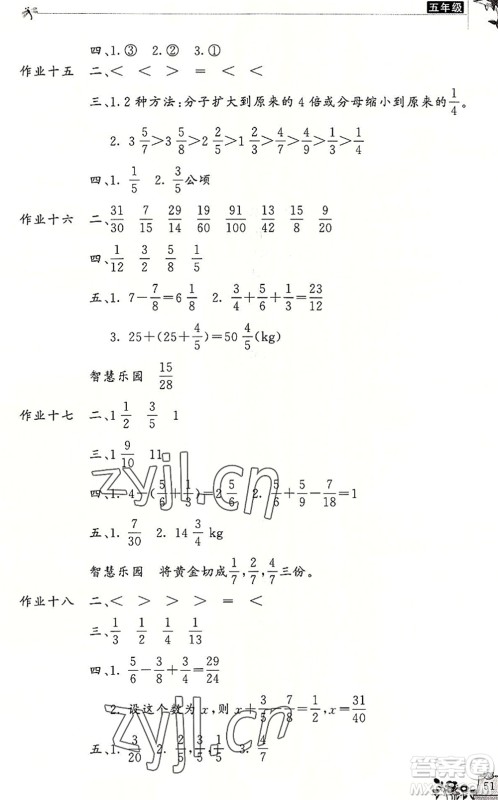 五年级
四、1. ③ 2. ③ 3. ①
作业十五 二、< < > = < <
三、1. 2 种方法:分子扩大到原来的 4 倍或分母缩小到原来的 1/4。
2. 3 5/7>3 5/8>2 5/8>5/7>5/9>1/3>1/4
四、1. 1/5 2. 3/5公顷
作业十六 二、31/30 7/15 29/14 19/60 91/100 13/8 9/20
四、1/12 3/2 5/8 1/5
五、1. 7-7/8=6 1/8 2. 3/4+5/6+1/3=23/12
3. 25+(25+4/5)=50 4/5(kg)
智慧乐园 15/28
作业十七 二、1 1/2 3/5 1
三、1 9/10 11
四、1. 4-(5/6+1/3)=2 5/6 2. 5/6+5/9-7/18=1
五、1. 7/30 2. 14 3/4 kg
智慧乐园 将黄金切成1/7,2/7,4/7三份。
作业十八 二、< > > > = <
三、1/3 1/2 1/4 13/13
四、1. 5/6-3/8+3/4=29/24
2. 设这个数为 x,则 x+3/5-7/8=1/2,x=31/40
五、1. 3/20 2. 3/4,2/5,3/5 3. 4/7
zyjl.cn
zyjl.cn
答案圈
51